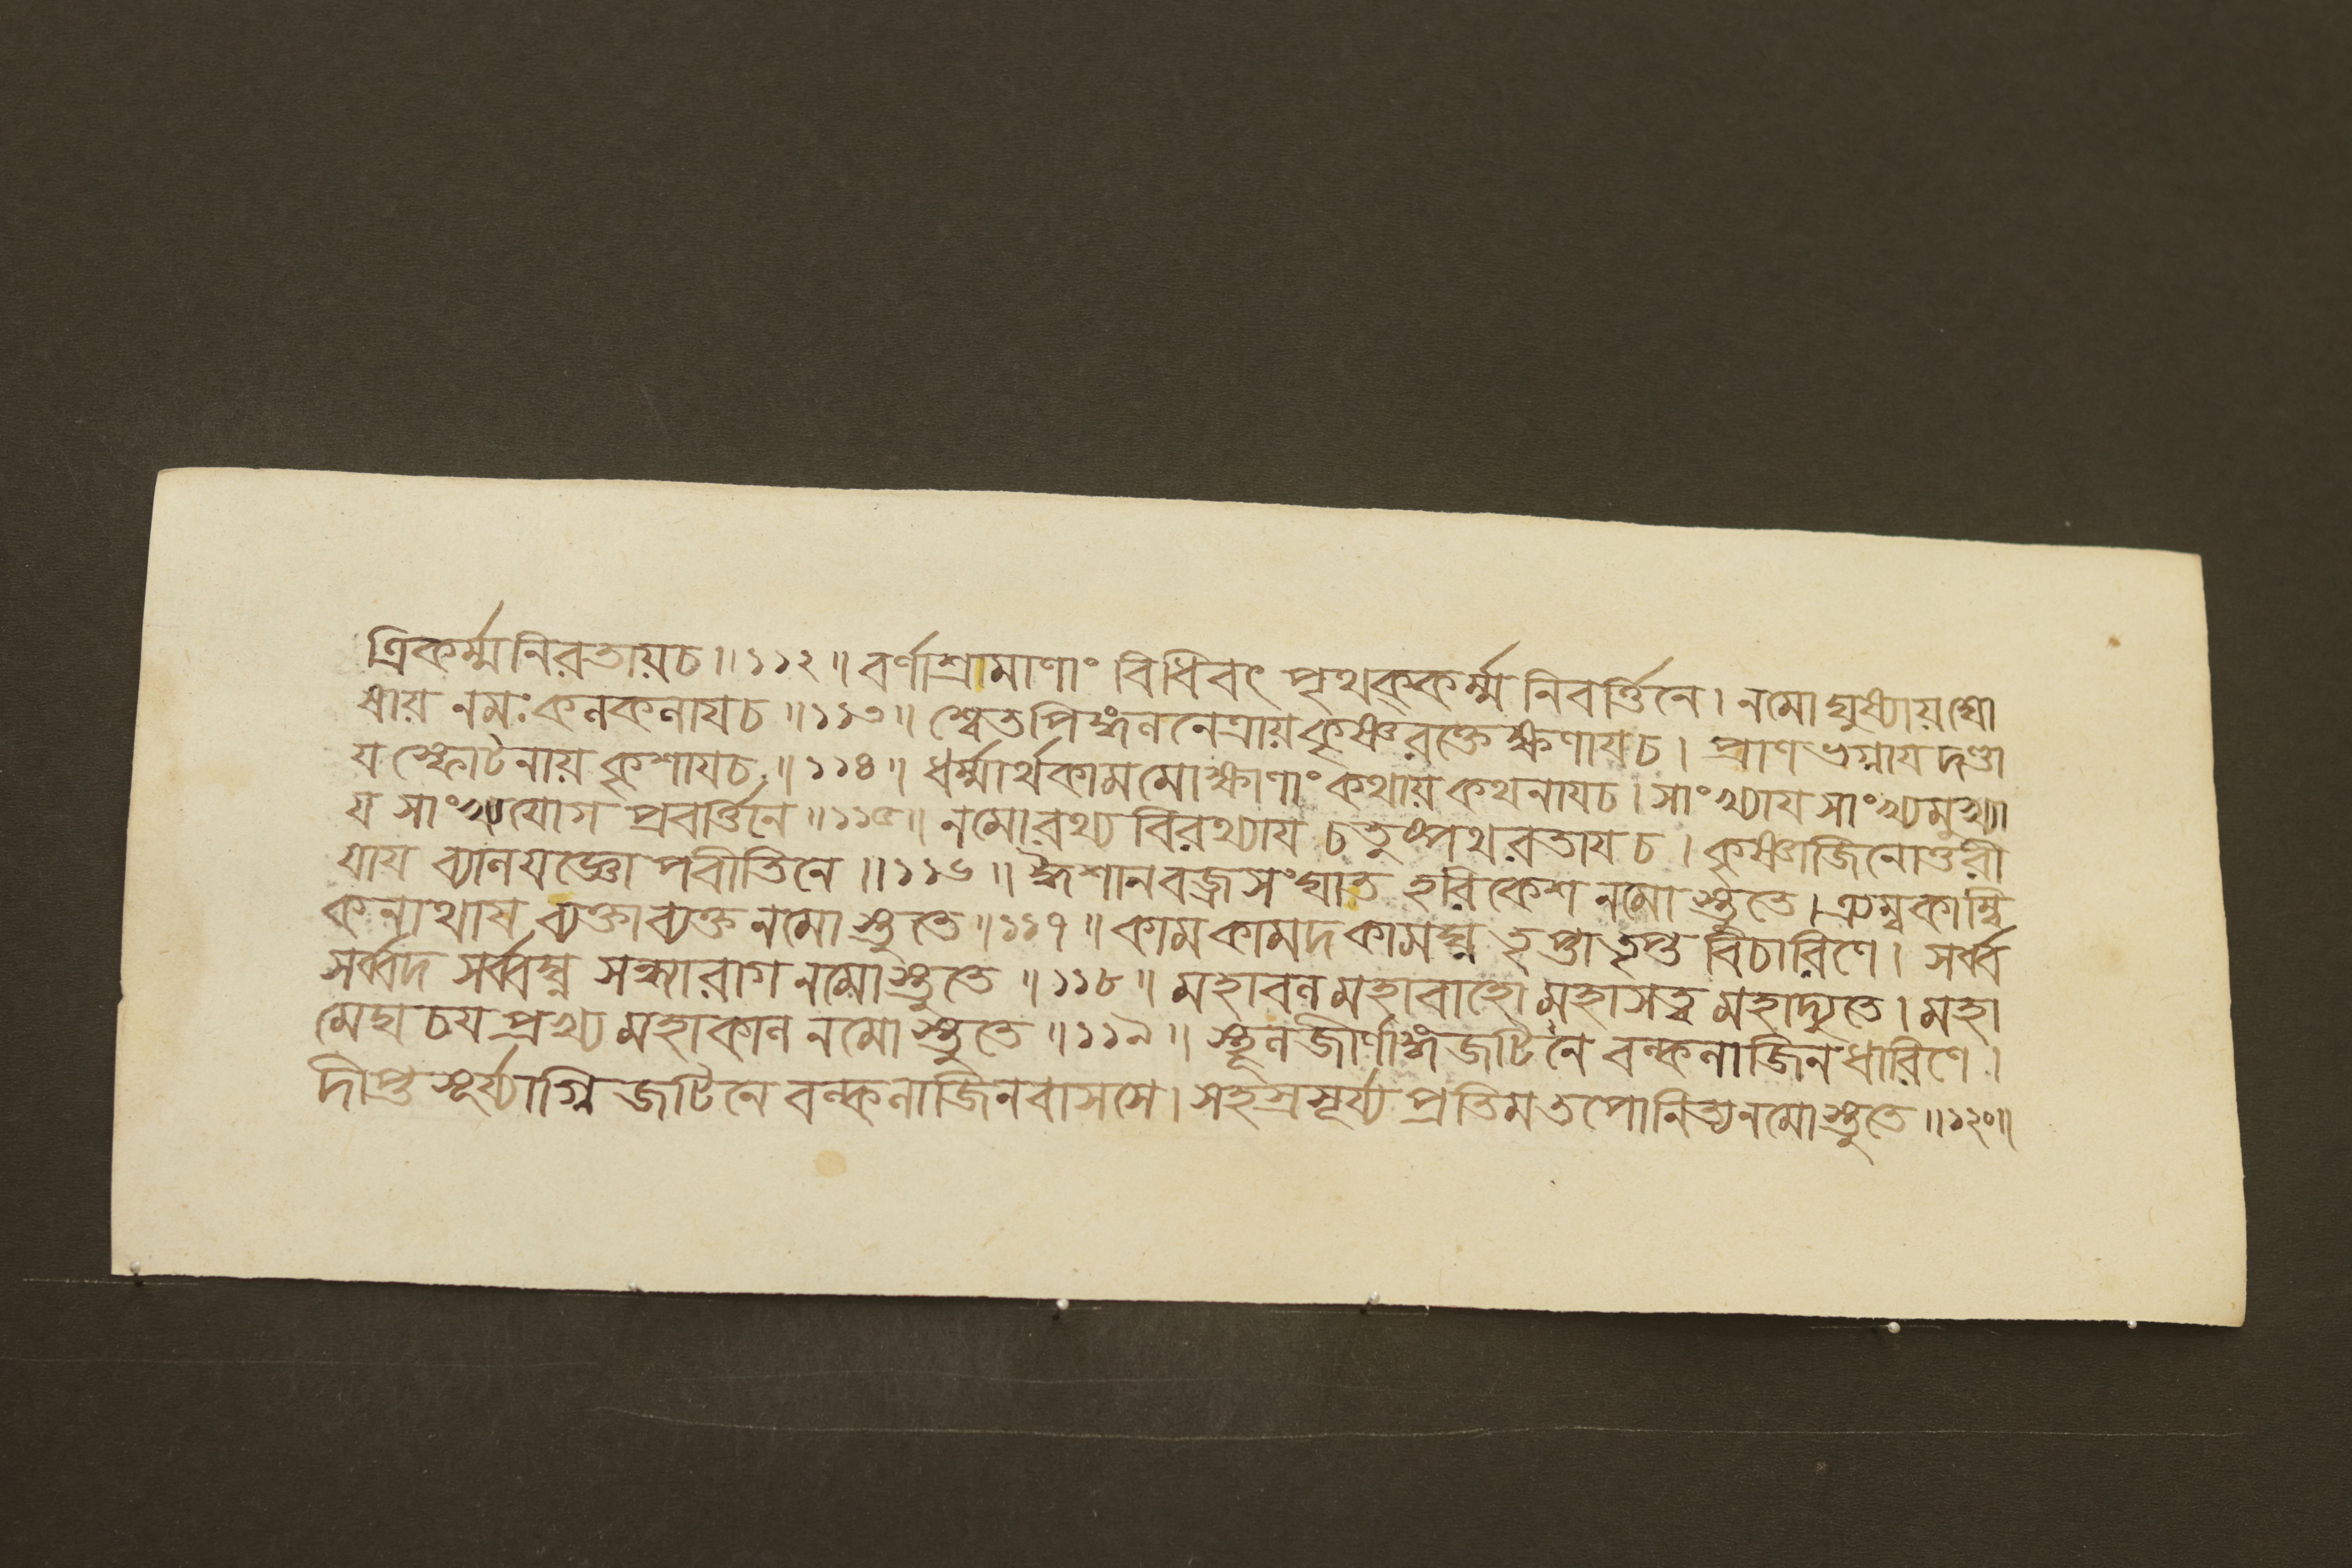 ত্রিকর্ম্মনিরতায়চ॥১১২॥ বর্ণাশ্রামাণাং বিধিবৎ পৃথক্কর্ম্ম নিবর্ত্তিনে। নমো ঘুষ্যায়ঘো
ষায় নমঃ কনকনাযচ॥১১৩॥ শ্বেতপিঙ্গননেত্রায় কৃষ্ণরক্তেক্ষণাযচ। প্রাণভগ্নায দণ্ডা
য স্ফোটনায় কৃশাযচ॥১১৪॥ ধর্ম্মার্থকামমোক্ষাণাং কথায় কথনাযচ। সাংখ্যায সাংখ্যমুখ্যা
য সাংখ্যযোগ প্রবর্ত্তিনে॥১১৫॥ নমোরথ্য বিরথ্যায চতুষ্পথরতাযচ। কৃষ্ণাজিনোত্তরী
যায ব্যানযজ্ঞোপবীতিনে॥১১৬॥ ঈশানবজ্রসংঘাত হরিকেশ নমোস্তুতে। ত্র্যম্বকাম্বি
কনাথায ব্যক্তাব্যক্ত নমোস্তুতে॥১১৭॥ কামকামদকামঘ্ন তৃপ্তাতৃপ্ত বিচারিণে। সর্ব্ব
সর্ব্বদ সর্ব্বঘ্ন সন্ধ্যারাগ নমোস্তুতে॥১১৮॥ মহাবন মহাবাহো মহাসত্ত্ব মহাদ্যুতে। মহা
মেঘচযপ্রখ্য মহাকান নমোস্তুতে॥১১৯॥ স্থূনজীর্ণাঙ্গজটিনে বল্কনাজিনধারিণে।
দীপ্তসূর্য্যাগ্নি জটিনে বল্কনাজিনবাসসে। সহস্রসূর্য্য প্রতিম তপোনিত্য নমোস্তুতে॥১২০॥